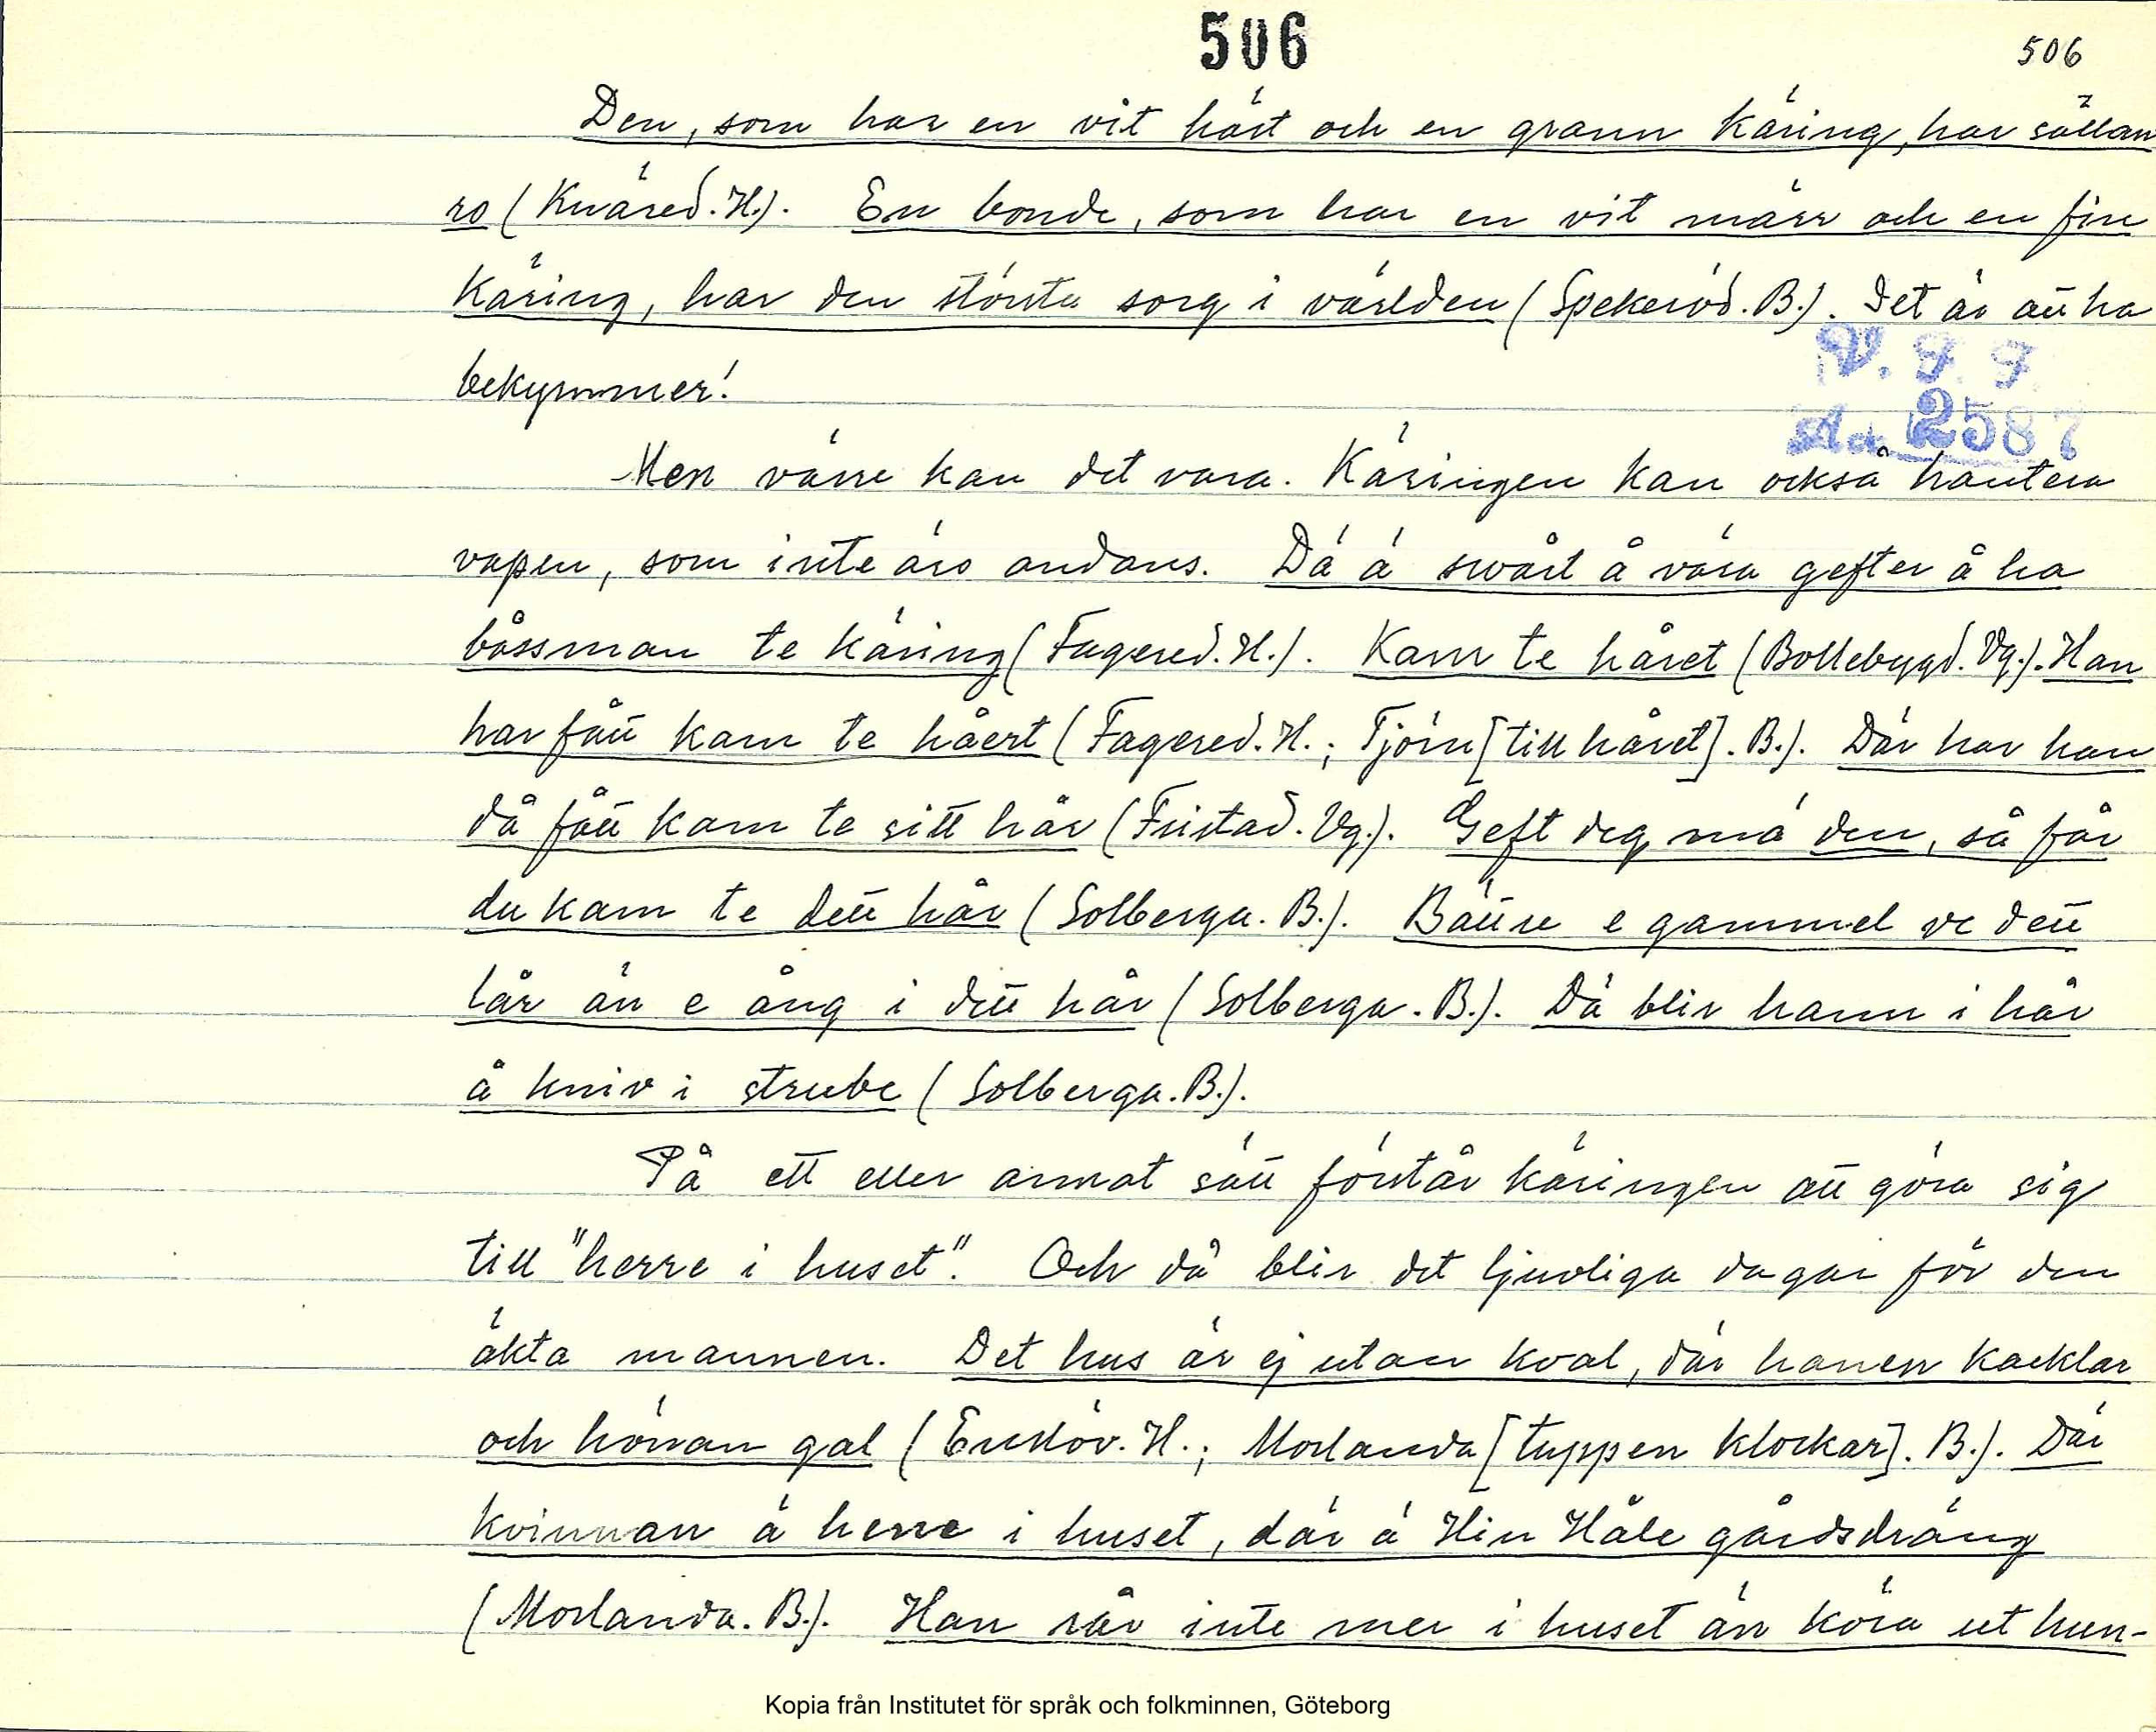 506
506
Den, som har en vit häst och en grann käring, har sällan
ro (Knäred. H.). En bonde, som har en vit märr och en fin
käring, har den största sorg i världen (Spekeröd. B.). Det är att ha
bekymmer!
V. F. F.
Acc. 2587
Men värre kan det vara. Käringen kan också hantera
vapen, som inte äro andans. Dä ä svårt å vära gefter å ha
båssman te käring (Fagered. H.). Kam te håret (Bollebygd. Vg.). Han
har fått kam te håert (Fagered. H.; Tjörn [till håret]. B.). Där har han
då fått kam te sitt hår (Fristad. Vg.). Geft deg mä den, så får
du kam te dett hår (Solberga. B.). Bättre e gammel ve dett
lår än e ång i dett hår (Solberga. B.). Dä blir hann i hår
å kniv i strube (Solberga. B.).
På ett eller annat sätt förstår käringen att göra sig
till "herre i huset". Och då blir det ljuvliga dagar för den
äkta mannen. Det hus är ej utan kval, där hanen kacklar
och hönan gal (Enslöv. H.; Morlanda [tuppen klockar]. B.). Där
kvinnan ä herre i huset, där ä Hin Håle gårdsdräng
(Morlanda. B.). Han rår inte mer i huset än köra ut hun-
Kopia från Institutet för språk och folkminnen, Göteborg